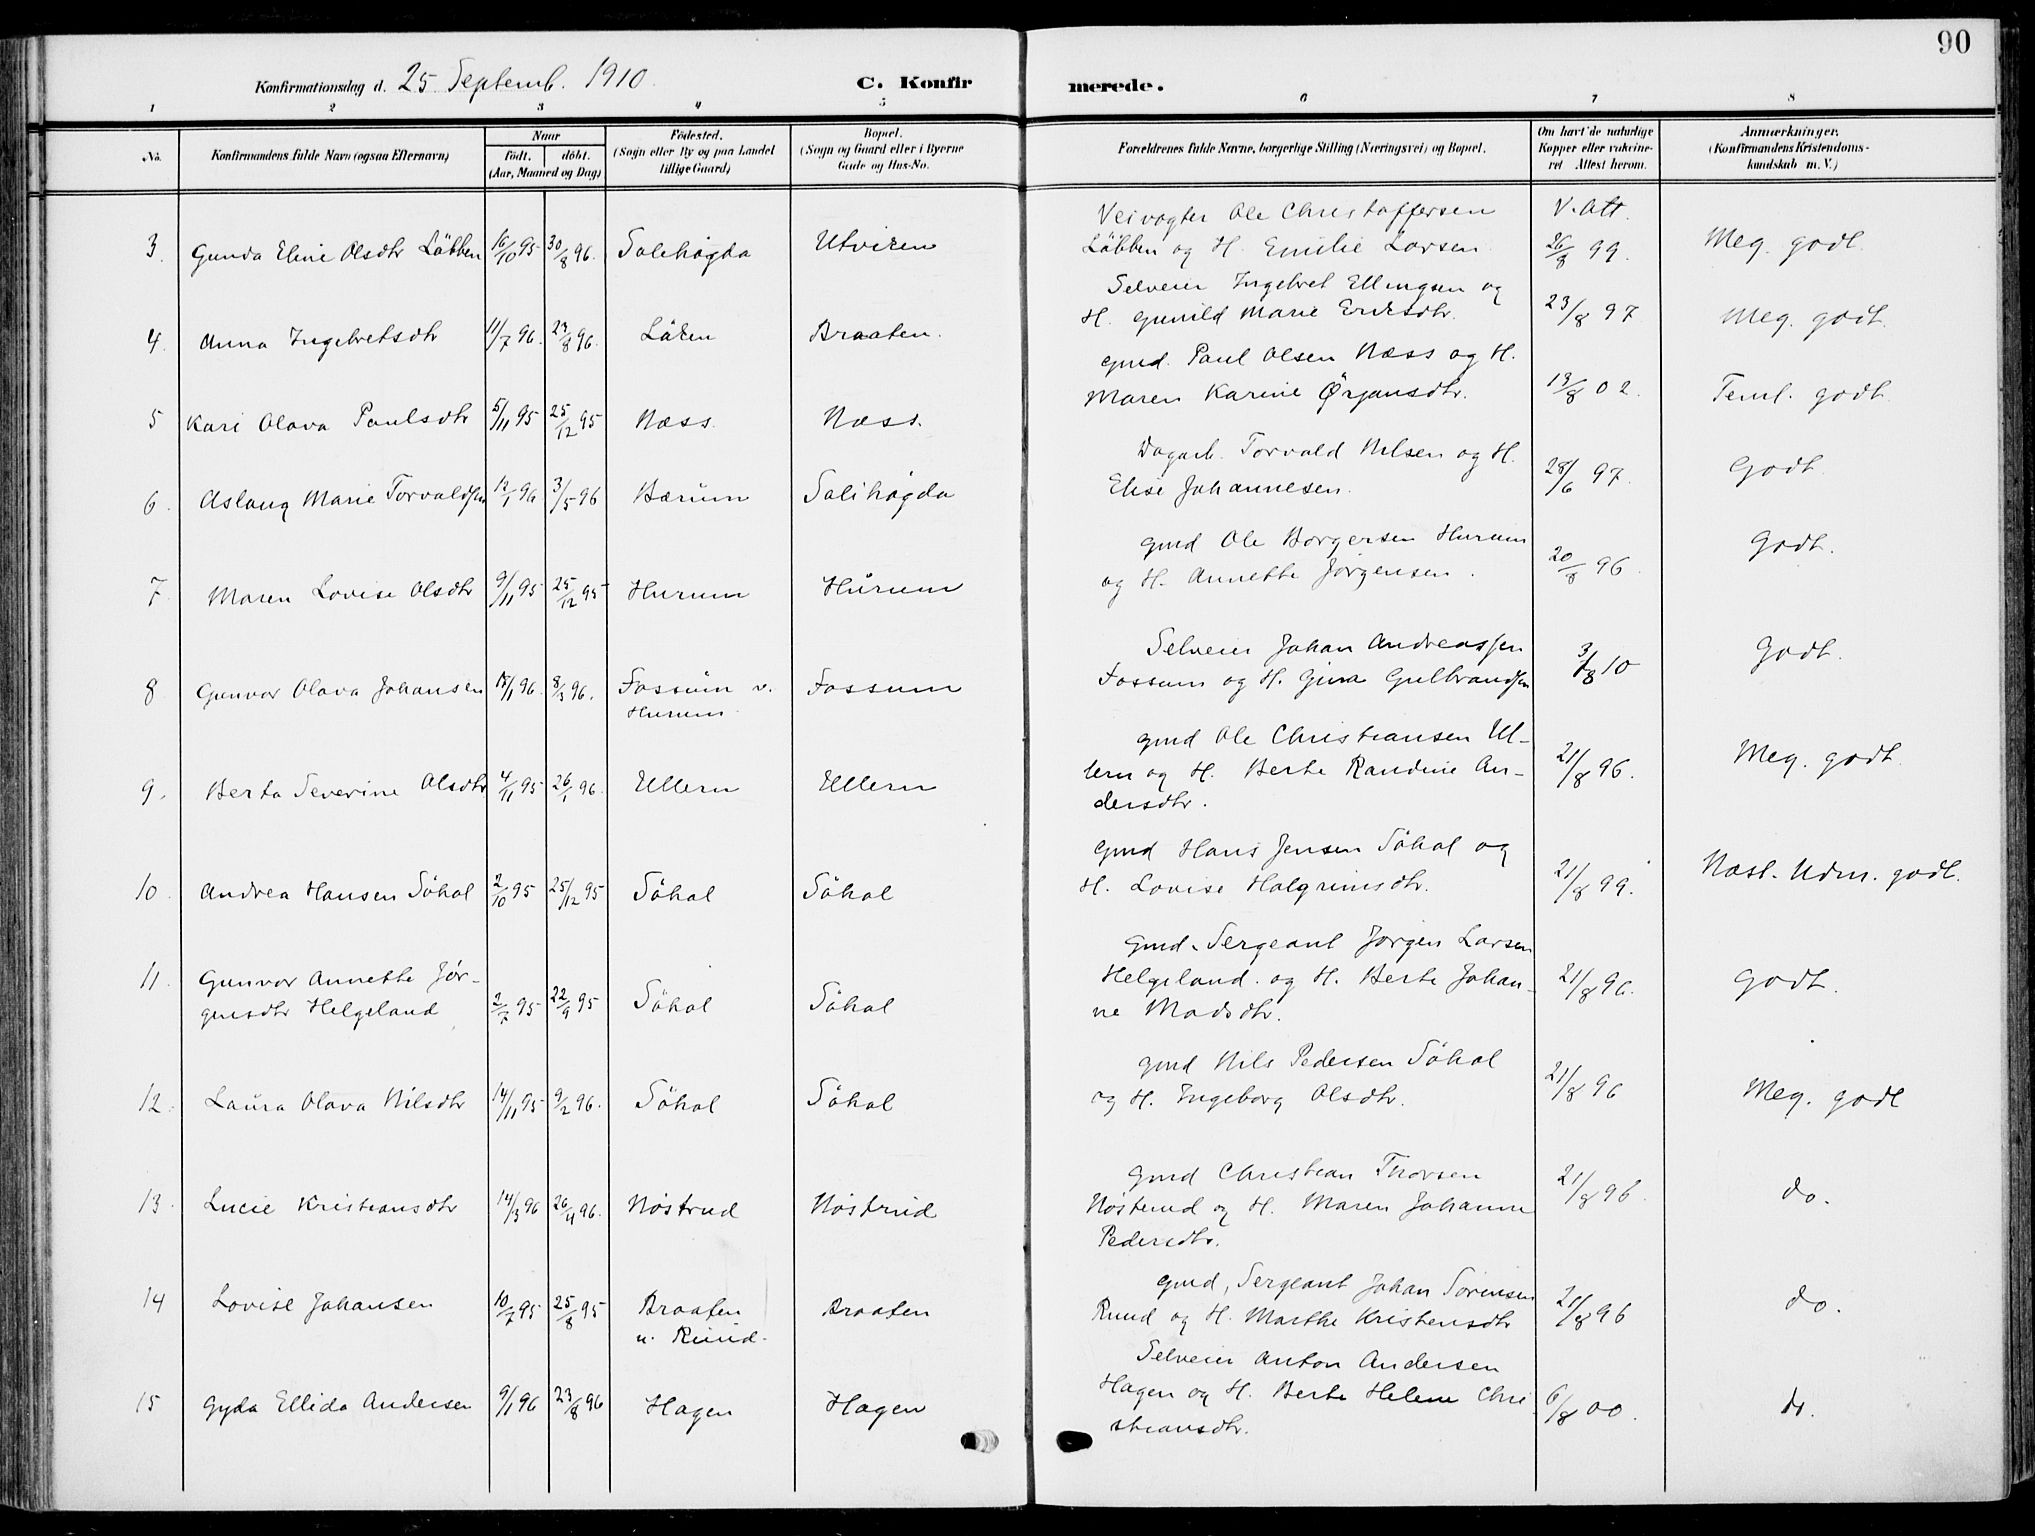 90
Konfirmationsdag d. 25 Septemb. 1910. C. Konfirmerede.
1 2 3 4 5 6 7 8
No. Konfirmandens fulde Navn (ogsaa Efternavn) Naar født. døbt. (Aar, Maaned og Dag) Fødested. (Sogn eller By og paa Landet tillige Gaard) Bopæl. (Sogn og Gaard eller i Byerne Gade og Hus-No. Forældrenes fulde Navne, borgerlige Stilling (Næringsvei) og Bopæl. Om havt de naturlige Kopper eller vakcineret Attest herom. Anmærkninger. (Konfirmandens Kristendomskundskab m. V.)
Veivogter Ole Christoffersen V. Att.
3. Gunda Eline Olsdtr Löbben 16/10 95 30/8 96. Solehøgda Utviken Löbben og H. Emilie Larsen 26/8 99. Meg. godt.
Selveier Ingebret Ellingsen og
4. Anna Ingebretsdtr 11/7 96. 23/8 96. Löken Braaten. H. Gunild Marie Eriksdtr. 23/8 97 Meg. godt.
Gmd. Paul Olsen Næss og H.
5 Kari Olava Paulsdtr 5/11 95 25/12 95 Næss. Næss. Maren Karine Ørjansdtr. 13/8 02. Teml. godt
Dagarb. Torvald Nilsen og H.
6. Aslaug Marie Torvaldsen 12/1 96 3/5 96 Bærum Solihøgda Elise Johannesen. 28/6 97. Godt.
Gmd Ole Borgersen Hurum
7. Maren Lovise Olsdtr 9/11 95 25/12 95 Hurum Hurum og H. Annette Jörgensen. 20/8 96. Godt.
Selveier Johan Andreassen
8 Gunvor Olava Johansen 18/1 96. 8/3 96. Fossum v. Hurum Fossum Fossum og H. Gina Gulbrandsen 3/8 10 Godt.
Gmd Ole Christiansen Ul-
9. Berta Severine Olsdtr 4/11 95 26/1 96. Ullern Ullern lern og H. Berte Randine An- 21/8 96. Meg. godt.
dersdtr.
Gmd Hans Jensen Söhol og
10. Andrea Hansen Söhol 2/10 95 25/12 95 Söhol Söhol H. Lovise Halgrimsdtr. 21/8 99. Næst. Udm. godt.
Gmd. Sergeant Jørgen Larsen
11. Gunvor Annette Jör- Helgeland. og H. Berte Johan- 21/8 96. Godt.
gensdtr Helgeland 2/7 95 22/9 95 Söhol Söhol ne Madsdtr.
Gmd Nils Pedersen Söhol
12. Laura Olava Nilsdtr 14/11 95 9/2 96. Söhol Söhol og H. Ingeborg Olsdtr. 21/8 96 Meg. godt
Gmd Christian Thorsen
13. Lucie Kristiansdtr 14/3 96 26/4 96. Nöstrud Nöstrud Nöstrud og H. Maren Johanne 21/8 96. do.
Pedersdtr.
Gmd, Sergeant Johan Sörensen
14 Lovise Johansen 10/7 95 25/8 95 Braaten u. Ruud. Braaten Ruud og H. Marthe Kristensdtr 21/8 96 do.
Selveier Anton Andersen
15 Gyda Ellida Andersen 9/1 96 23/8 96 Hagen Hagen Hagen og H. Berte Helene Chri 6/8 00. do.
stiansdtr.